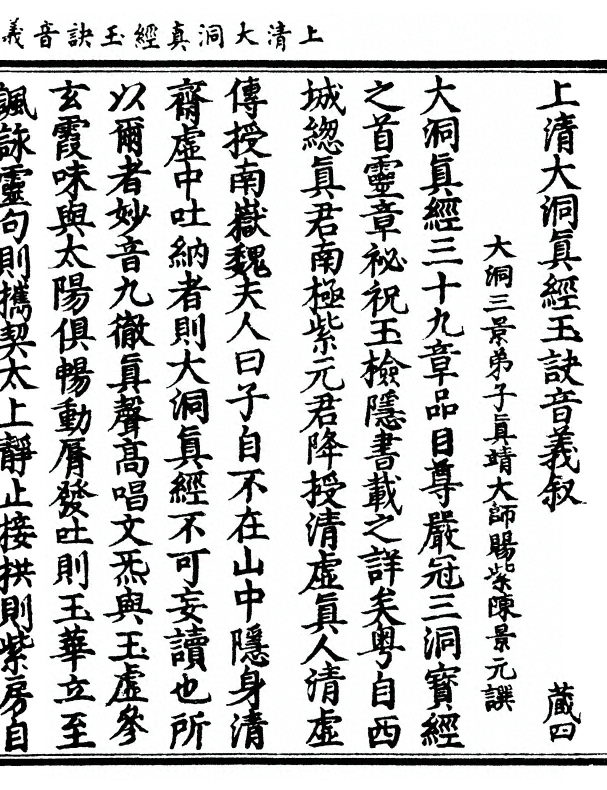 上清大洞真經玉訣音義
上清大洞真經玉訣音義叙　藏四
大洞三景弟子真靖大師賜紫陳景元譔
大洞真經三十九章品目尊嚴冠三洞寶經
之首靈章祕祝玉檢隱書載之詳矣粤自西
城緫真君南極紫元君降授清虛真人清虛
傳授南嶽魏夫人曰子自不在山中隱身清
齋虛中吐納者則大洞真經不可妄讀也所
以爾者妙音九徹真聲高唱文炁與玉虛參
玄霞味與太陽俱暢動脣發吐則玉華立至
諷詠靈句則攜契太上靜止接拱則紫房自